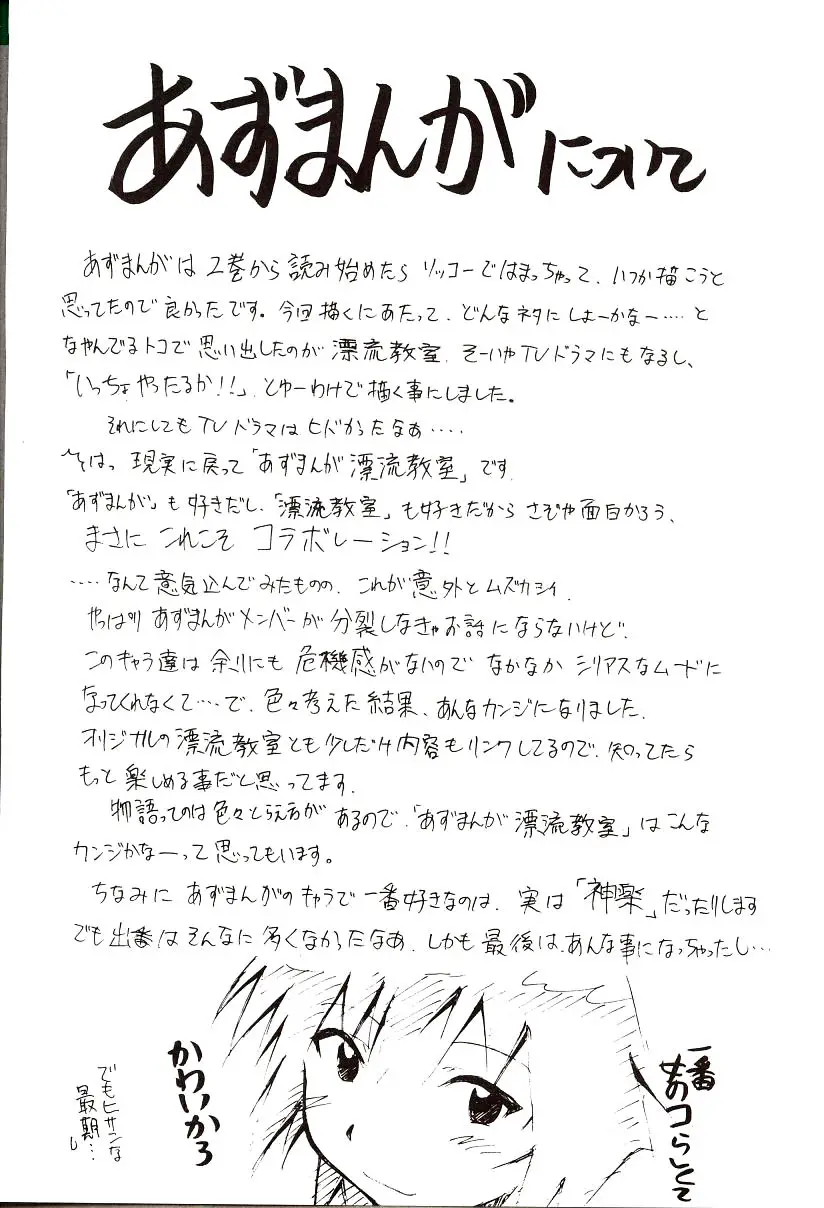 あずまんがについて
あずまんがは2巻から読み始めたらソッコーではまっちゃって、いつか描こうと
思ってたので良かったです。今回描くにあたって、どんなネタにしよーかなー‥‥と
なやんでるトコで思い出したのが漂流教室、そーいやTVドラマにもなるし、
「いっちょやったるか!!」、とゆーわけで描く事にしました。
それにしてもTVドラマはヒドかったなぁ‥‥
そはっ 現実に戻って「あずまんが漂流教室」です
「あずまんが」も好きだし、「漂流教室」も好きだからさぞや面白かろう、
まさにこれこそコラボレーション!!
‥‥なんて意気込んでみたものの、これが意外とムズカシイ、
やっぱりあずまんがメンバーが分裂しなきゃお話にならないけど、
このキャラ達は余りにも危機感がないのでなかなかシリアスなムードに
なってくれなくて‥‥で、色々考えた結果、あんなカンジになりました、
オリジナルの漂流教室とも少しだけ内容もリンクしてるので、知ってたら
もっと楽しめる事だと思ってます、
物語ってのは色々とらえ方があるので、「あずまんが漂流教室」はこんな
カンジかなーって思ってもいます。
ちなみにあずまんがのキャラで一番好きなのは、実は「神楽」だったりします
でも出番はそんなに多くなかったなあ、しかも最後は、あんな事になっちゃったし‥
一番
女のコらしくて
かわいかろ
でもヒサンな
最期‥し